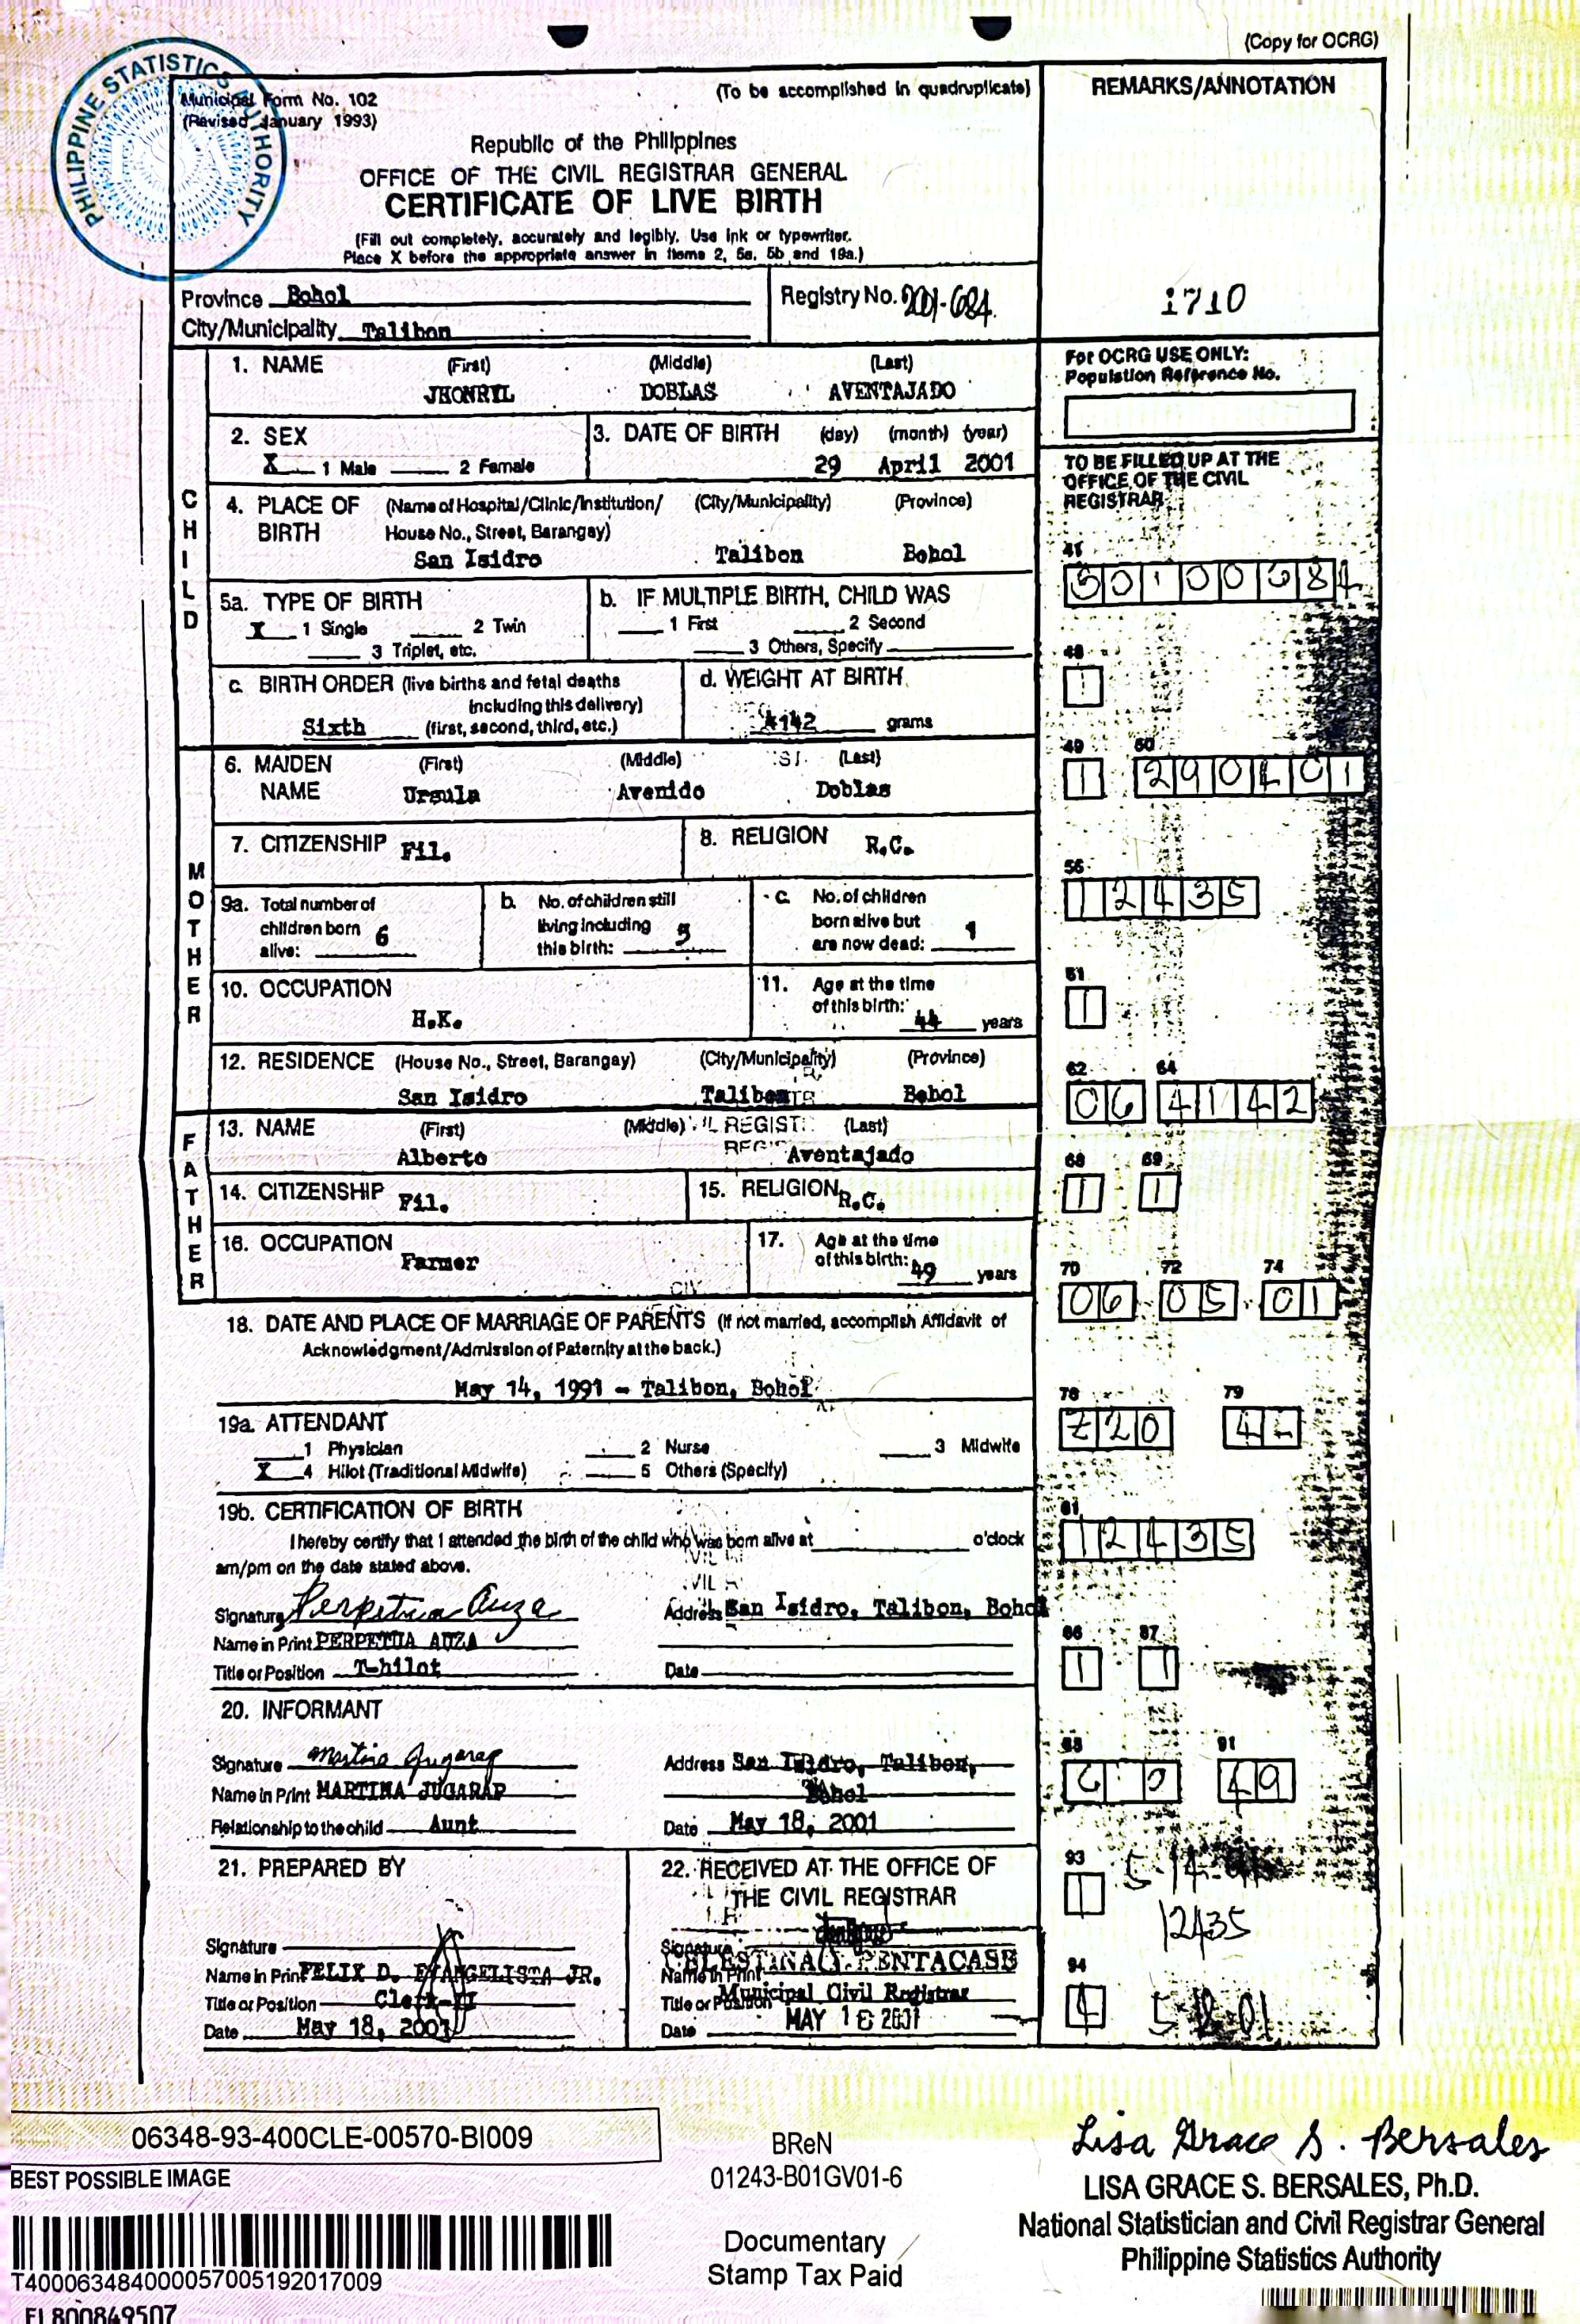 (Copy for OCRG)
PHILIPPINE STATISTICS AUTHORITY
Municipal Form No. 102
(Revised January 1993)
(To be accomplished in quadruplicate)
Republic of the Philippines
OFFICE OF THE CIVIL REGISTRAR GENERAL
CERTIFICATE OF LIVE BIRTH
(Fill out completely, accurately and legibly. Use ink or typewriter.
Place X before the appropriate answer in items 2, 5a, 5b and 19a.)
REMARKS/ANNOTATION
1710
Province Bohol
City/Municipality Talibon
Registry No. 2001-684
For OCRG USE ONLY:
Population Reference No.
CHILD
1. NAME (First) (Middle) (Last)
JHONRYL DOBLAS AVENTAJADO
2. SEX
X 1 Male 2 Female
3. DATE OF BIRTH (day) (month) (year)
29 April 2001
4. PLACE OF BIRTH (Name of Hospital/Clinic/Institution/ (City/Municipality) (Province)
House No., Street, Barangay)
San Isidro Talibon Bohol
5a. TYPE OF BIRTH
X 1 Single 2 Twin
3 Triplet, etc.
b. IF MULTIPLE BIRTH, CHILD WAS
1 First 2 Second
3 Others, Specify
c. BIRTH ORDER (live births and fetal deaths
including this delivery)
Sixth (first, second, third, etc.)
d. WEIGHT AT BIRTH
4142 grams
MOTHER
6. MAIDEN NAME (First) (Middle) (Last)
Ursula Avenido Doblas
7. CITIZENSHIP Fil.
8. RELIGION R.C.
9a. Total number of
children born
alive: 6
b. No. of children still
living including
this birth: 5
c. No. of children
born alive but
are now dead: 1
10. OCCUPATION
H.K.
11. Age at the time
of this birth: 44 years
12. RESIDENCE (House No., Street, Barangay) (City/Municipality) (Province)
San Isidro Talibon Bohol
FATHER
13. NAME (First) (Middle) (Last)
Alberto Aventajado
14. CITIZENSHIP Fil.
15. RELIGION R.C.
16. OCCUPATION
Farmer
17. Age at the time
of this birth: 49 years
18. DATE AND PLACE OF MARRIAGE OF PARENTS (If not married, accomplish Affidavit of
Acknowledgment/Admission of Paternity at the back.)
May 14, 1991 - Talibon, Bohol
19a. ATTENDANT
1 Physician 2 Nurse 3 Midwife
X 4 Hilot (Traditional Midwife) 5 Others (Specify)
19b. CERTIFICATION OF BIRTH
I hereby certify that I attended the birth of the child who was born alive at o'clock
am/pm on the date stated above.
Signature Perpetua Auza
Name in Print PERPETUA AUZA
Title or Position T-hilot
Address San Isidro, Talibon, Bohol
Date
20. INFORMANT
Signature Martina Jugarap
Name in Print MARTINA JUGARAP
Relationship to the child Aunt
Address San Isidro, Talibon,
Bohol
Date May 18, 2001
21. PREPARED BY
Signature
Name in Print FELIX D. EVANGELISTA JR.
Title or Position Clerk-II
Date May 18, 2001
22. RECEIVED AT THE OFFICE OF
THE CIVIL REGISTRAR
Signature
Name in Print CELESTINA J. PENTACASE
Title or Position Municipal Civil Registrar
Date MAY 18 2001
TO BE FILLED UP AT THE
OFFICE OF THE CIVIL
REGISTRAR
48
1
49 50
1 290401
56
12435
61
1
62 64
06 4142
68 69
1 1
70 72 74
06 05 01
76 79
220
81
12435
86 87
1 1
91
49
93
1
12435
94
06348-93-400CLE-00570-BI009
BEST POSSIBLE IMAGE
T400063484000057005192017009
FL800849507
BReN
01243-B01GV01-6
Documentary
Stamp Tax Paid
Lisa Grace S. Bersales
LISA GRACE S. BERSALES, Ph.D.
National Statistician and Civil Registrar General
Philippine Statistics Authority